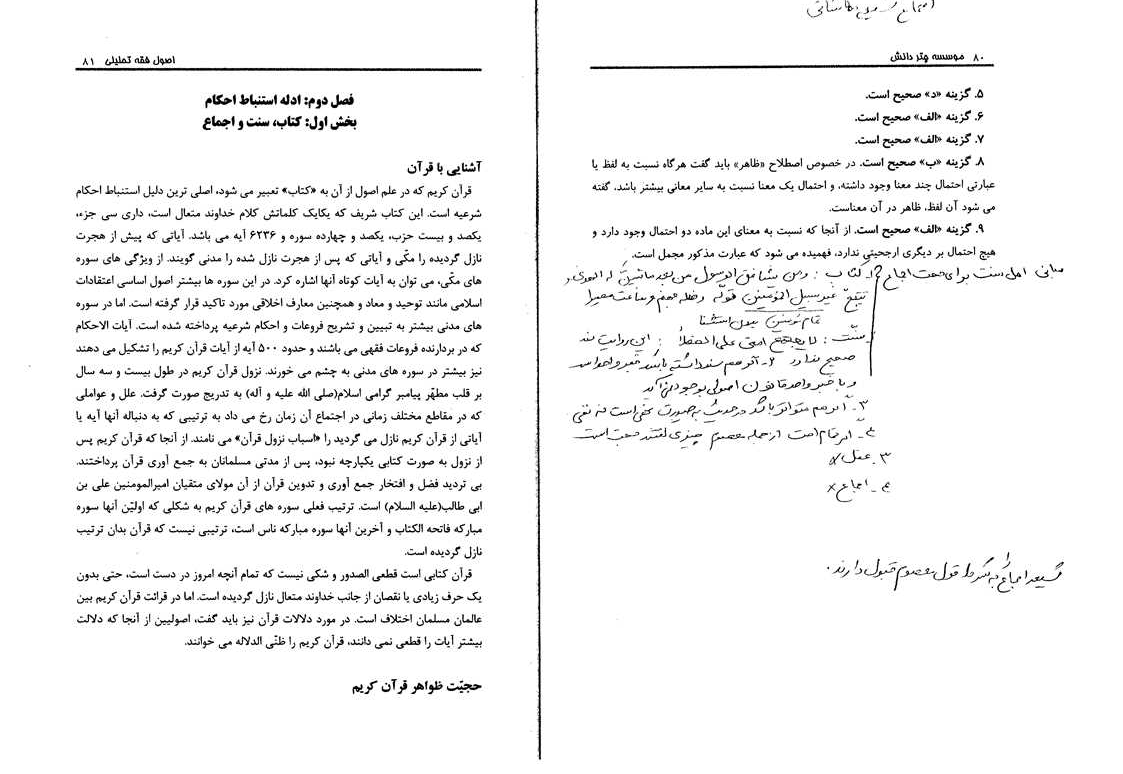 ۸۰ موسسه چتر دانش
۵. گزینه «د» صحیح است.
۶. گزینه «الف» صحیح است.
۷. گزینه «الف» صحیح است.
۸. گزینه «ب» صحیح است. در خصوص اصطلاح «ظاهر» باید گفت هرگاه نسبت به لفظ یا
عبارتی احتمال چند معنا وجود داشته، و احتمال یک معنا نسبت به سایر معانی بیشتر باشد، گفته
می شود آن لفظ، ظاهر در آن معناست.
۹. گزینه «الف» صحیح است. از آنجا که نسبت به معنای این ماده دو احتمال وجود دارد و
هیچ احتمال بر دیگری ارجحیتی ندارد، فهمیده می شود که عبارت مذکور مجمل است.
مبانی اهل سنت برای حجت اجماع ۱- کتاب : ومن یشاقق الرسول من بعد ما تبین له الهدی و
یتبع غیر سبیل المؤمنین نوله
تمام مومنین بدون استثنا
سنت : لا یجتمع امتی علی الخطأ : این روایت سند
صحیح ندارد ۲- اگر هم سند داشته باشد خبر واحد است
و با خبر واحد قانون اصولی بوجود نمی آید
۳- اگر هم متواتر باشد در حدیث به صورت نفی است نه نهی
۴- اگر تمام امت از جمله معصوم چیزی گفتند حجت است
۳- عقل x
۴- اجماع x
شیعه اجماع را به شرط قول معصوم قبول دارند.
اصول فقه تحلیلی ۸۱
فصل دوم: ادله استنباط احکام
بخش اول: کتاب، سنت و اجماع
آشنایی با قرآن
قرآن کریم که در علم اصول از آن به «کتاب» تعبیر می شود، اصلی ترین دلیل استنباط احکام
شرعیه است. این کتاب شریف که یکایک کلماتش کلام خداوند متعال است، داری سی جزء،
یکصد و بیست حزب، یکصد و چهارده سوره و ۶۲۳۶ آیه می باشد. آیاتی که پیش از هجرت
نازل گردیده را مکّی و آیاتی که پس از هجرت نازل شده را مدنی گویند. از ویژگی های سوره
های مکّی، می توان به آیات کوتاه آنها اشاره کرد. در این سوره ها بیشتر اصول اساسی اعتقادات
اسلامی مانند توحید و معاد و همچنین معارف اخلاقی مورد تاکید قرار گرفته است. اما در سوره
های مدنی بیشتر به تبیین و تشریح فروعات و احکام شرعیه پرداخته شده است. آیات الاحکام
که در بردارنده فروعات فقهی می باشند و حدود ۵۰۰ آیه از آیات قرآن کریم را تشکیل می دهند
نیز بیشتر در سوره های مدنی به چشم می خورند. نزول قرآن کریم در طول بیست و سه سال
بر قلب مطهّر پیامبر گرامی اسلام(صلی الله علیه و آله) به تدریج صورت گرفت. علل و عواملی
که در مقاطع مختلف زمانی در اجتماع آن زمان رخ می داد به ترتیبی که به دنباله آنها آیه یا
آیاتی از قرآن کریم نازل می گردید را «اسباب نزول قرآن» می نامند. از آنجا که قرآن کریم پس
از نزول به صورت کتابی یکپارچه نبود، پس از مدتی مسلمانان به جمع آوری قرآن پرداختند.
بی تردید فضل و افتخار جمع آوری و تدوین قرآن از آن مولای متقیان امیرالمومنین علی بن
ابی طالب(علیه السلام) است. ترتیب فعلی سوره های قرآن کریم به شکلی که اولین آنها سوره
مبارکه فاتحه الکتاب و آخرین آنها سوره مبارکه ناس است، ترتیبی نیست که قرآن بدان ترتیب
نازل گردیده است.
قرآن کتابی است قطعی الصدور و شکی نیست که تمام آنچه امروز در دست است، حتی بدون
یک حرف زیادی یا نقصان از جانب خداوند متعال نازل گردیده است. اما در قرائت قرآن کریم بین
عالمان مسلمان اختلاف است. در مورد دلالات قرآن نیز باید گفت، اصولیین از آنجا که دلالت
بیشتر آیات را قطعی نمی دانند، قرآن کریم را ظنّی الدلاله می خوانند.
حجیّت ظواهر قرآن کریم